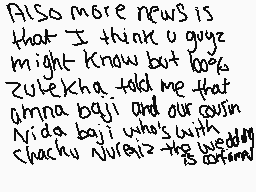 Also more news is
that I think u guyz
might know but
Zulekha told me that
amna baji and our cousin
Nida baji who's with
chachu the wedding
is confirmed